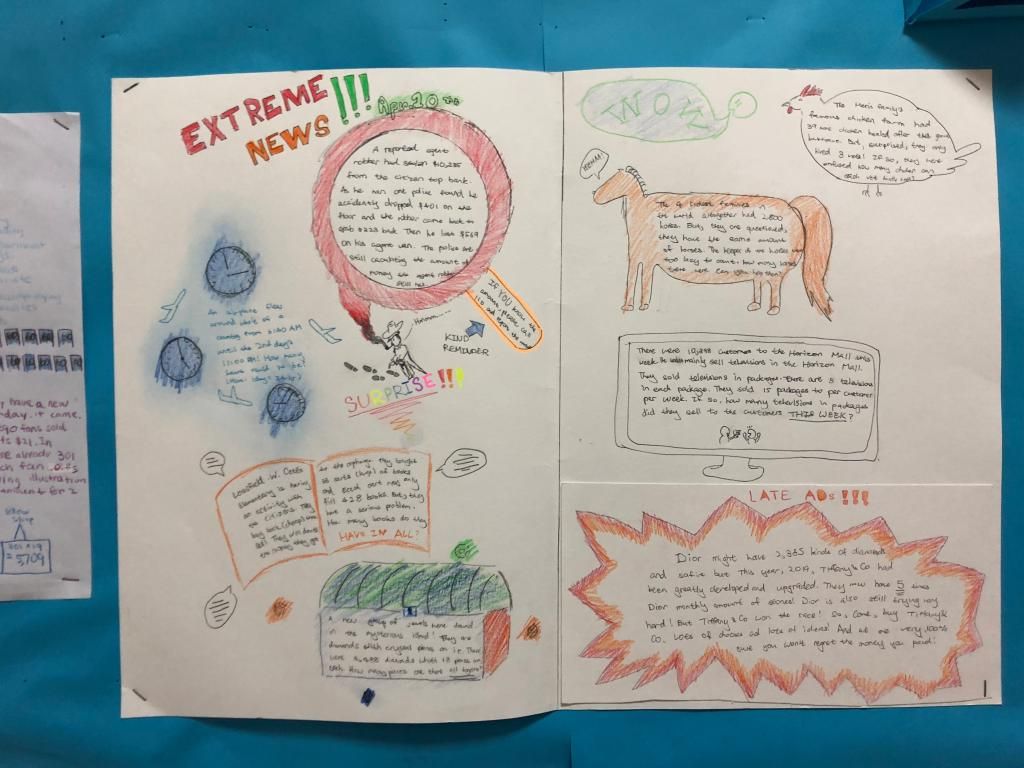 EXTREME
NEWS !!!
Apr. 10th
A reported agent
robber had stolen $10,285
from the citizen top bank.
As he ran one police found he
accidently dropped $401 on the
floor and the robber came back to
grab $223 back. Then he lost $569
on his again. The police are
still calculating the amount of
money the agent robber
still has.
If YOU know the
amount, please call
110 and the
KIND
REMINDER
Hmmm....
An airplane flew
around whole of a
country from AM
until the 2nd day's
11:00 AM! How many
hours could it be!
SURPRISE!!!
W. Cates
Elementary is having
an activity with
the citizens. They
buy books (cheap) and
sell! They will donate
the money they get
to the orphange. They bought
38 carts (huge) of books
and each cart may only
fill 428 books. But, they
have a serious problem.
How many books do they
HAVE IN ALL?
A new group of jewels were found
in the mysterious island! They are
diamonds which crystal piece on it. There
were diamonds which 18 piece on
each. How many pieces are there all together?
WOW
The family's
famous chicken farm had
39 more chicken healed after the
But, surprised, they only
hired 3 vets! If so, they were
confused how many chicken can
each vet
HEHM!
The 4 richest families in
the world altogether had 2,800
horses. But, they are questioned,
they have the same amount
of horses. The keeper of horses was
too lazy to count. How many horses
there were. Can you help them?
There were 10,298 customer to the Horizon Mall this
week. It mainly sell televisions in the Horizon Mall.
They sold televisions in packages. There are 5 televisions
in each package. They sold 15 packages to per customer
per week. If so, how many televisions in packages
did they sell to the customers THIS WEEK?
LATE ADs !!!
Dior might have 2,365 kinds of diamonds
and safire but this year, 2019, Tiffany & Co had
been greatly developed and upgraded. They now have 5 times
Dior monthly amount of stones! Dior is also still trying very
hard! But Tiffany & Co won the race! So, come, buy Tiffany &
Co. Lots of choices and lots of ideas! And we are very, 100%
sure you won't regret the money you paid!
have a new
day. It came.
90 fans sold
$21. In
already 301
ch fan
illustration
for 2